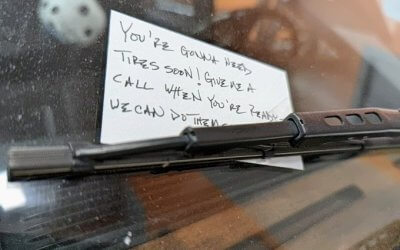 YOU'RE GONNA NEED
TIRES SOON! GIVE ME A
CALL WHEN YOU'RE READY
WE CAN DO THEM